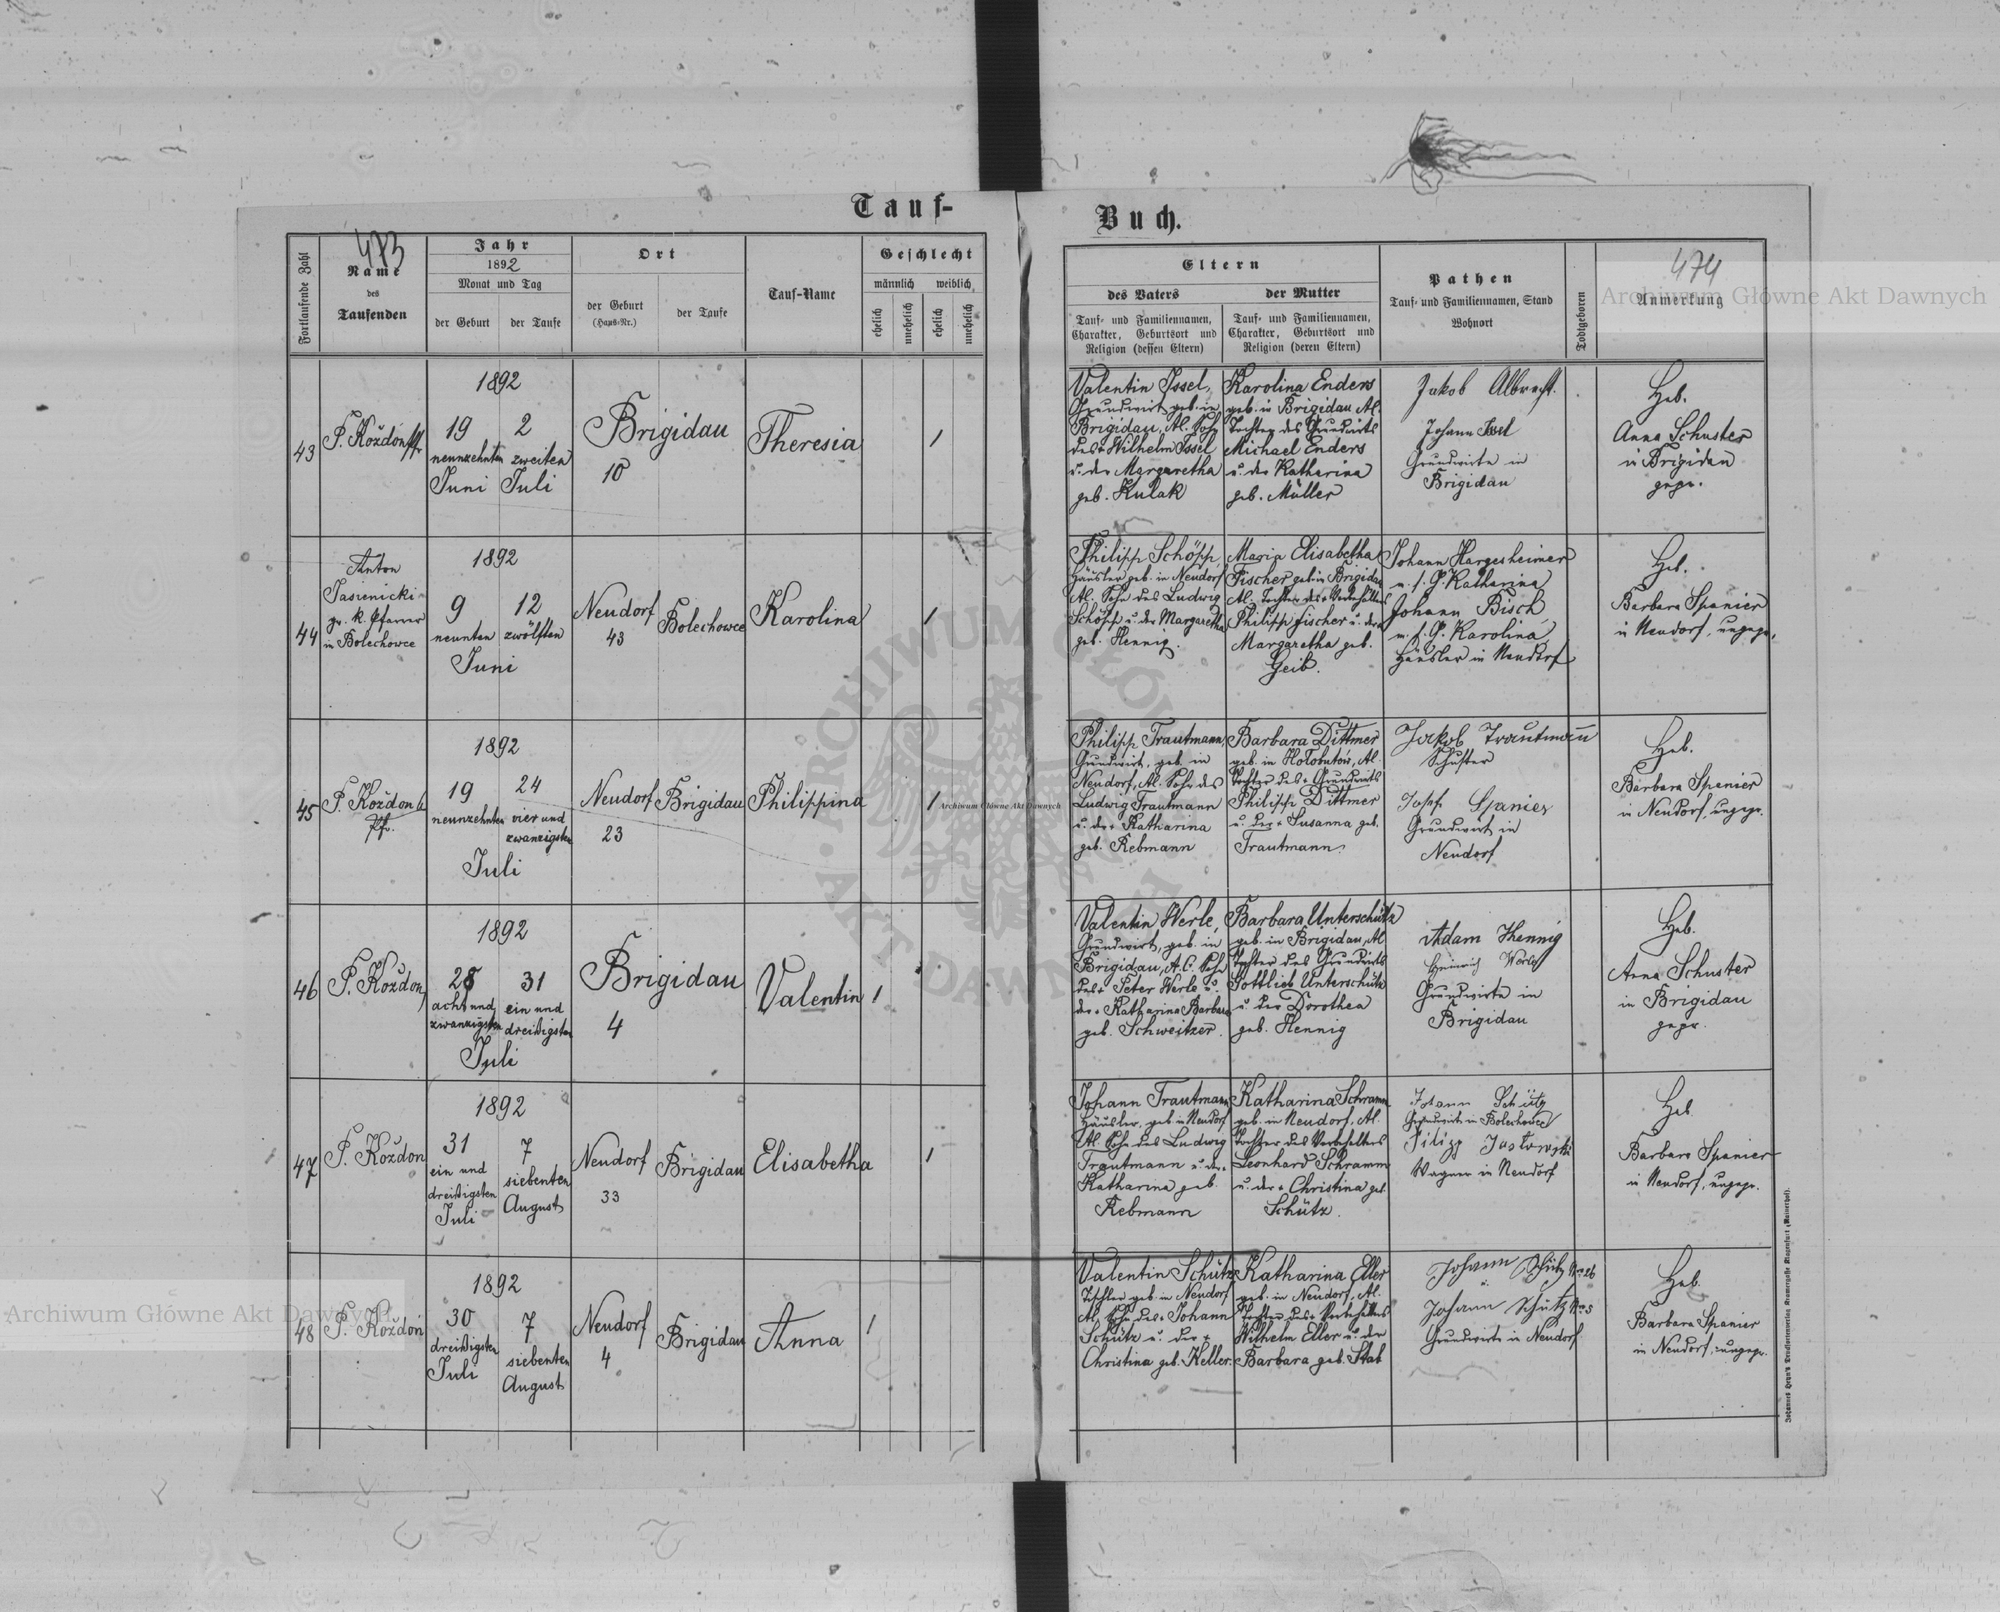 Tauf-
Buch.
473
474
Fortlaufende Zahl
Name
des
Taufenden
Jahr
1892
Monat und Tag
der Geburt
der Taufe
Ort
der Geburt
(Haus-Nr.)
der Taufe
Tauf-Name
Geschlecht
männlich
weiblich
ehelich
unehelich
ehelich
unehelich
Eltern
des Vaters
der Mutter
Tauf- und Familiennamen,
Charakter, Geburtsort und
Religion (dessen Eltern)
Tauf- und Familiennamen,
Charakter, Geburtsort und
Religion (deren Eltern)
Pathen
Tauf- und Familiennamen, Stand
Wohnort
Todtgeboren
Anmerkung
43
P. Koždoń
1892
19
neunzehnten
Juni
2
zweiten
Juli
Brigidau
10
Theresia
1
Valentin Issel,
Grundwirt geb. in
Brigidau, Al. Sohn
des + Wilhelm Issel
u. der Margaretha
geb. Kulak
Karolina Enders
geb. in Brigidau Al.
Tochter des Grundwirts
Michael Enders
u. der Katharina
geb. Müller
Jakob Albrecht.
Johann Issel
Grundwirte in
Brigidau
Heb.
Anna Schuster
in Brigidau
gepr.
44
Anton
Jasienicki
gr. k. Pfarrer
in Bolechowce
1892
9
neunten
12
zwölften
Juni
Neudorf
43
Bolechowce
Karolina
1
Philipp Schöpp
Häusler geb. in Neudorf
Al. Sohn des Ludwig
Schöpp u. der Margaretha
geb. Hennig.
Maria Elisabetha
Fischer geb. in Brigidau
Al. Tochter des + Vorbehalters
Philipp Fischer u. der
Margaretha geb.
Geib.
Johann Hargesheimer
m. s. G. Katharina
Johann Bisch,
m. s. G. Karolina
Häusler in Neudorf
Heb.
Barbara Spanier
in Neudorf, ungepr.
45
P. Koždoń
Pfr.
1892
19
neunzehnten
24
vier und
zwanzigsten
Juli
Neudorf
23
Brigidau
Philippina
1
Philipp Trautmann,
Grundwirt, geb. in
Neudorf, Al. Sohn des
Ludwig Trautmann
u. der + Katharina
geb. Rebmann
Barbara Dittmer
geb. in Hołobutów, Al.
Tochter des + Grundwirts
Philipp Dittmer
u. der + Susanna geb.
Trautmann.
Jakob Trautmann
Schuster
Josef Spanier
Grundwirt in
Neudorf
Heb.
Barbara Spanier
in Neudorf, ungepr.
46
P. Koždoń
1892
28
acht und
zwanzigsten
31
ein und
dreißigsten
Juli
Brigidau
4
Valentin
1
Valentin Werle,
Grundwirt, geb. in
Brigidau, A.C. Sohn
des + Peter Werle u.
der + Katharina Barbara
geb. Schweitzer.
Barbara Unterschütz
geb. in Brigidau, Al.
Tochter des Grundwirts
Gottlieb Unterschütz
u. der Dorothea
geb. Hennig
Adam Hennig
Heinrich Werle
Grundwirte in
Brigidau
Heb.
Anna Schuster
in Brigidau
gepr.
47
P. Koždoń
1892
31
ein und
dreißigsten
Juli
7
siebenten
August
Neudorf
33
Brigidau
Elisabetha
1
Johann Trautmann
Häusler, geb. in Neudorf
Al. Sohn des Ludwig
Trautmann u. der +
Katharina geb.
Rebmann
Katharina Schramm
geb. in Neudorf, Al.
Tochter des Vorbehalters
Leonhard Schramm
u. der + Christina geb.
Schütz.
Johann Schütz
Grundwirt in Bolechowce
Wagner in Neudorf
Heb.
Barbara Spanier
in Neudorf, ungepr.
48
P. Koždoń
1892
30
dreißigsten
Juli
7
siebenten
August
Neudorf
4
Brigidau
Anna
1
Valentin Schütz
Tischler geb. in Neudorf
Al. Sohn des + Johann
Schütz u. der +
Christina geb. Keller.
Katharina Eller
geb. in Neudorf, Al.
Tochter des + Vorbehalters
Wilhelm Eller u. der
Barbara geb. Stab
Johann Schütz No 26
u.
Johann Schütz No 5
Grundwirte in Neudorf
Heb.
Barbara Spanier
in Neudorf, ungepr.
Archiwum Główne Akt Dawnych
Archiwum Główne Akt Dawnych
Archiwum Główne Akt Dawnych
ARCHIWUM GŁÓWNE AKT DAWNYCH